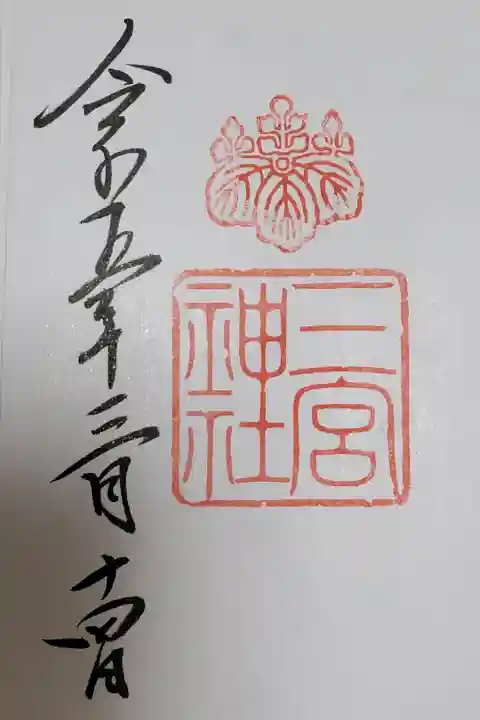 二宮
神社
令和五年三月十四日